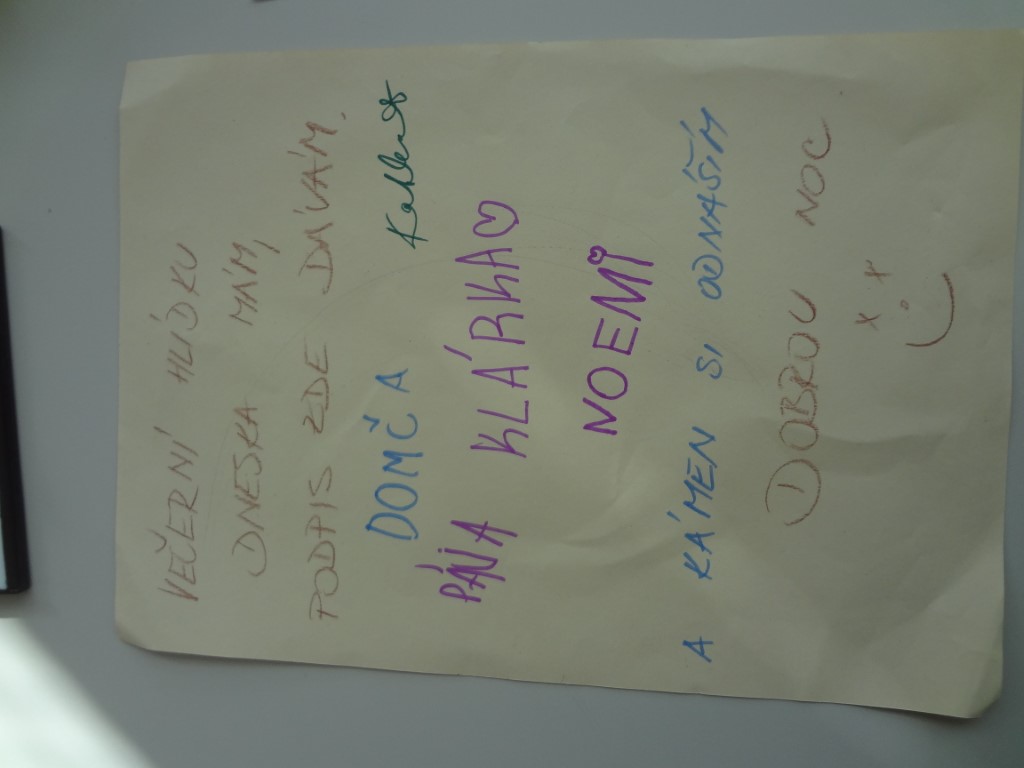 VEČERNÍ HLÍDKU
DNESKA MÁM,
PODPIS ZDE DÁVÁM.
DOMČA
PÁJA KLÁRKA♡
NOEMI
A KÁMEN SI ODNAŠÍM
DOBROU NOC